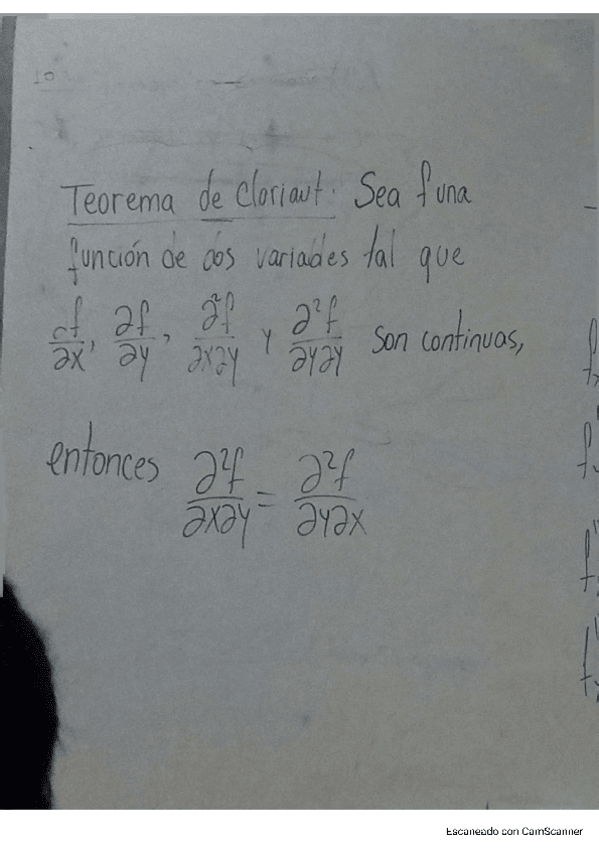 Teorema de Cloriaut. Sea f una
función de dos variables tal que
∂f/∂x, ∂f/∂y, ∂²f/∂x∂y y ∂²f/∂y∂y son continuas,
entonces ∂²f/∂x∂y = ∂²f/∂y∂x
Escaneado con CamScanner